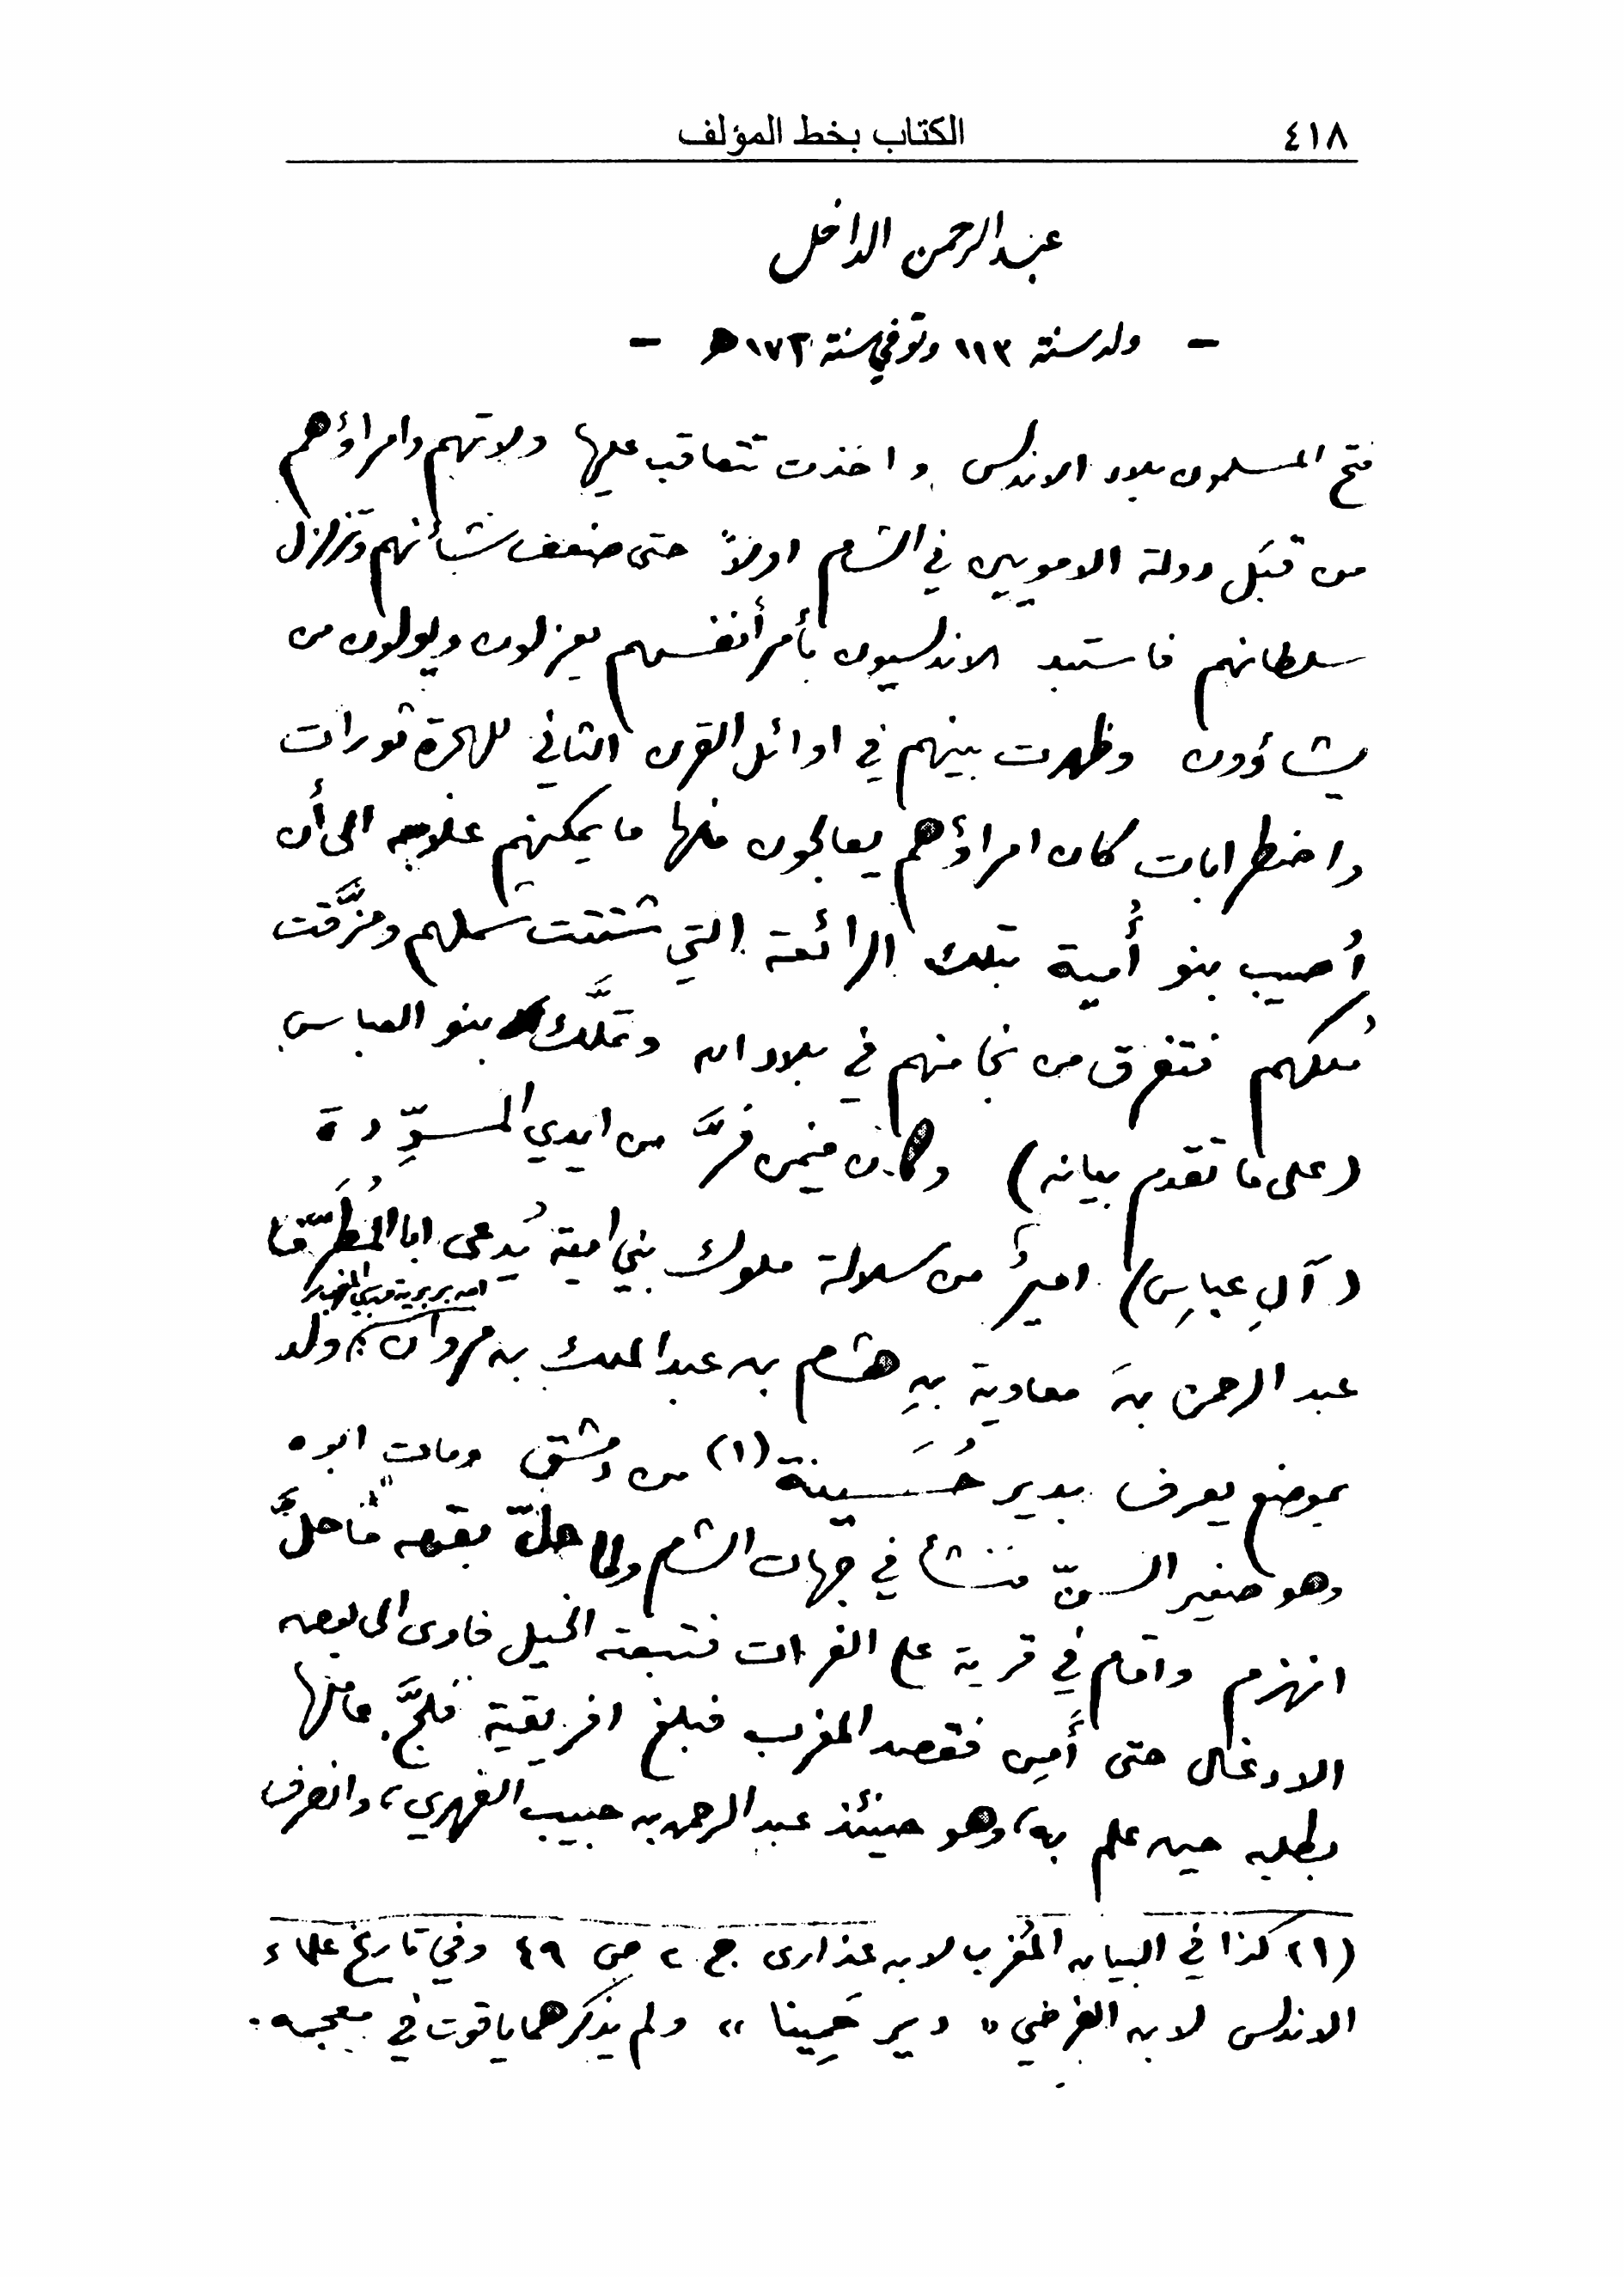 ٤١٨ الكتاب بخط المؤلف
عبد الرحمن الداخل
- ولد سنة ١١٣ وتوفي سنة ١٧٢ هـ -
فتح المسلمون بلاد الاندلس واخذت تتعاقب عليها ولاتهم وامراؤهم
من قبَل دولة الامويين في الشام اولاً حتى ضعف شأنهم وتزلزل
سلطانهم فاستبد الاندلسيون بأمر أنفسهم يعزلون ويولون من
يشاؤون وظهرت بينهم في اوائل القرن الثاني للهجرة ثورات
واضطرابات كان امراؤهم يعالجون منها ما يمكنهم علاجه الى أن
اُصيب بنو أُمية بتلك الرائعة التي شتتت شملهم ومزَّقت
مُلكهم فتفرق من نجا منهم في بلاد الله وتملَّك بنو العباس
(على ما تقدم بيانه) وكان فيمن فرَّ من ايدي المسوِّدة
(آلِ عباسِ) اميرٌ من سلالة ملوك بني امية يُدعى ابا المُطَرِّف
امه بربرية من سبي المغرب
عبد الرحمن بنَ معاوية بنِ هشام بن عبد الملك بن مروان، ولد
بموضع يعرف بدير حُسَينة (١) من دمشق ومات ابوه
وهو صغير السنّ فنشأ في جهات الشام ولما حلّ بقومه ما حلَّ
انهزم واقام في قرية على الفرات فتبعته الخيل فاوى الى بعض
الادغال حتى أَمِن فقصد المغرب فبلغ افريقية فلجَّ عاملها
بطلبه حين علم به، وهو حينئذ عبد الرحمن بن حبيب الفهري، وانصرف
(١) كذا في البيان المُغرب لابن عذارى ج ٢ ص ٤٩ وفي تاريخ علماء
الاندلس لابن الفرضي « دير حَمِينا » ولم يذكرهما ياقوت في معجمه.